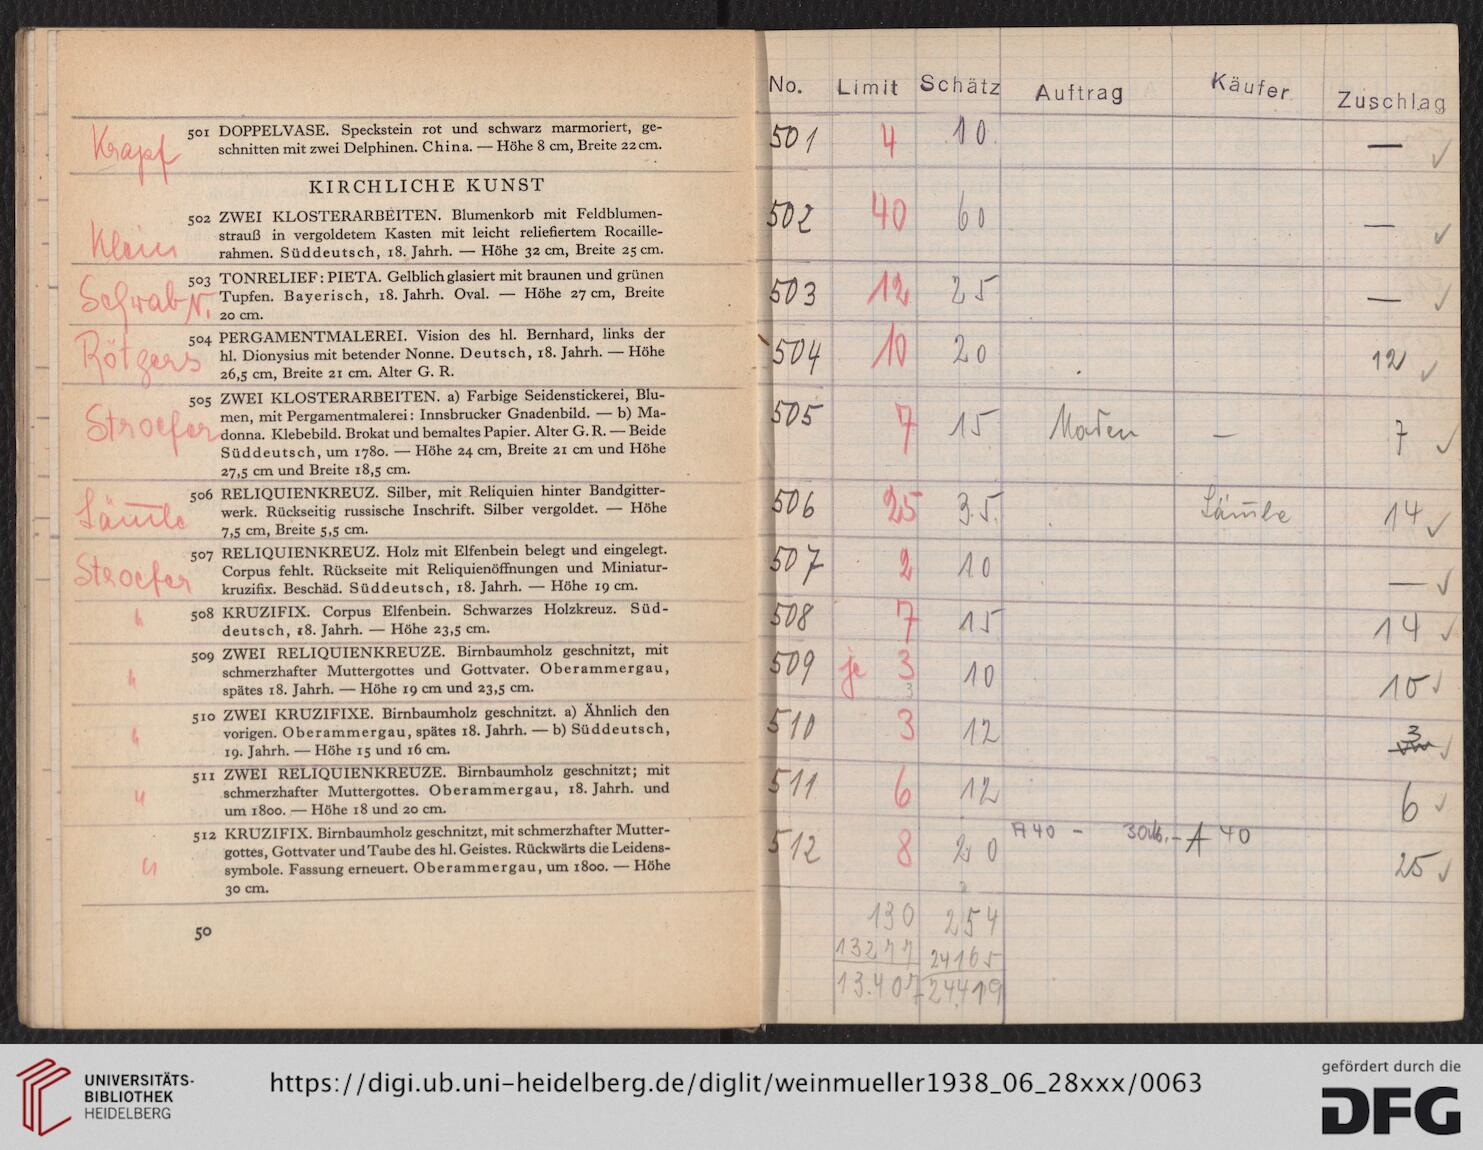 Krapf
501 DOPPELVASE. Speckstein rot und schwarz marmoriert, ge-
schnitten mit zwei Delphinen. China. — Höhe 8 cm, Breite 22 cm.
KIRCHLICHE KUNST
Klein
502 ZWEI KLOSTERARBEITEN. Blumenkorb mit Feldblumen-
strauß in vergoldetem Kasten mit leicht reliefiertem Rocaille-
rahmen. Süddeutsch, 18. Jahrh. — Höhe 32 cm, Breite 25 cm.
Schwab N.
503 TONRELIEF: PIETA. Gelblich glasiert mit braunen und grünen
Tupfen. Bayerisch, 18. Jahrh. Oval. — Höhe 27 cm, Breite
20 cm.
Rötgers
504 PERGAMENTMALEREI. Vision des hl. Bernhard, links der
hl. Dionysius mit betender Nonne. Deutsch, 18. Jahrh. — Höhe
26,5 cm, Breite 21 cm. Alter G. R.
Stroefer
505 ZWEI KLOSTERARBEITEN. a) Farbige Seidenstickerei, Blu-
men, mit Pergamentmalerei: Innsbrucker Gnadenbild. — b) Ma-
donna. Klebebild. Brokat und bemaltes Papier. Alter G. R. — Beide
Süddeutsch, um 1780. — Höhe 24 cm, Breite 21 cm und Höhe
27,5 cm und Breite 18,5 cm.
Läm̄le
506 RELIQUIENKREUZ. Silber, mit Reliquien hinter Bandgitter-
werk. Rückseitig russische Inschrift. Silber vergoldet. — Höhe
7,5 cm, Breite 5,5 cm.
Stroefer
507 RELIQUIENKREUZ. Holz mit Elfenbein belegt und eingelegt.
Corpus fehlt. Rückseite mit Reliquienöffnungen und Miniatur-
kruzifix. Beschäd. Süddeutsch, 18. Jahrh. — Höhe 19 cm.
"
508 KRUZIFIX. Corpus Elfenbein. Schwarzes Holzkreuz. Süd-
deutsch, 18. Jahrh. — Höhe 23,5 cm.
"
509 ZWEI RELIQUIENKREUZE. Birnbaumholz geschnitzt, mit
schmerzhafter Muttergottes und Gottvater. Oberammergau,
spätes 18. Jahrh. — Höhe 19 cm und 23,5 cm.
"
510 ZWEI KRUZIFIXE. Birnbaumholz geschnitzt. a) Ähnlich den
vorigen. Oberammergau, spätes 18. Jahrh. — b) Süddeutsch,
19. Jahrh. — Höhe 15 und 16 cm.
"
511 ZWEI RELIQUIENKREUZE. Birnbaumholz geschnitzt; mit
schmerzhafter Muttergottes. Oberammergau, 18. Jahrh. und
um 1800. — Höhe 18 und 20 cm.
"
512 KRUZIFIX. Birnbaumholz geschnitzt, mit schmerzhafter Mutter-
gottes, Gottvater und Taube des hl. Geistes. Rückwärts die Leidens-
symbole. Fassung erneuert. Oberammergau, um 1800. — Höhe
30 cm.
50
No. Limit Schätz Auftrag Käufer Zuschlag
501 4 10 — ✓
502 40 60 — ✓
503 12 25 — ✓
504 10 20 12 ✓
505 7 15 — 7 ✓
506 25 35. Läm̄le 14 ✓
507 2 10 — ✓
508 7 15 14 ✓
509 je 3 10 10 ✓
3
510 3 12 3 ✓
511 6 12 6 ✓
512 8 20 A 40 - A 40 25 ✓
130 254
13277 24165
13.407 24419
UNIVERSITÄTS-
BIBLIOTHEK
HEIDELBERG
https://digi.ub.uni-heidelberg.de/diglit/weinmueller1938_06_28xxx/0063
gefördert durch die
DFG